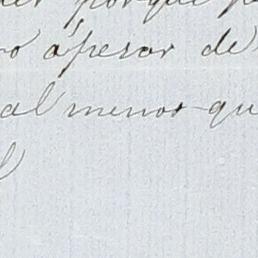 porque
ápesar de
al menos qu